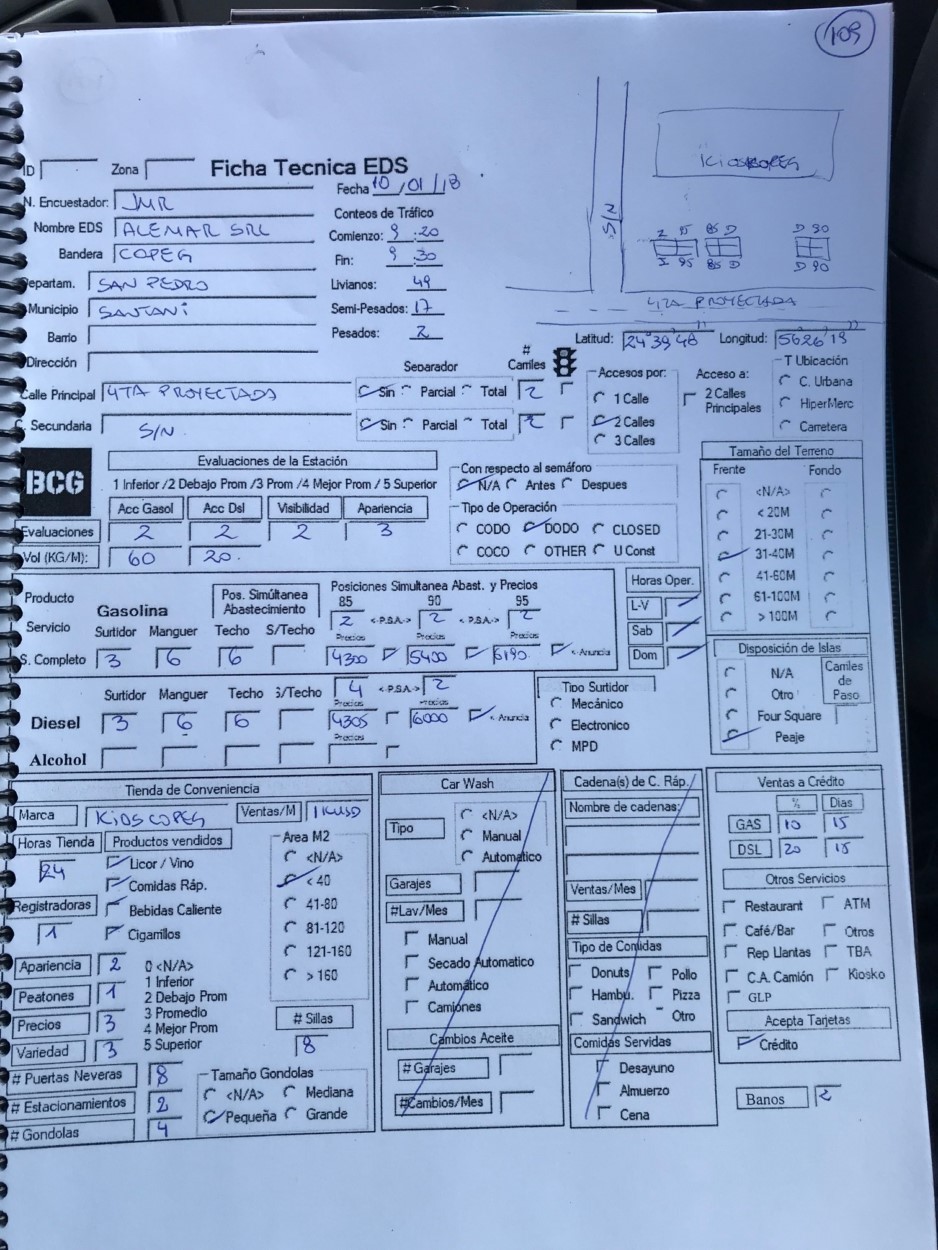 109
KIOSKOPEG
S/N
Z 95 85 D
D 90
Z 95 85 D
D 90
4TA PROYECTADA
ID Zona Ficha Tecnica EDS
Fecha 10/01/18
N. Encuestador: JMR
Nombre EDS ALEMAR SRL
Bandera COPEG
Departam. SAN PEDRO
Municipio SANTANI
Barrio
Dirección
Conteos de Tráfico
Comienzo: 9:20
Fin: 9:30
Livianos: 49
Semi-Pesados: 17
Pesados: 2
Latitud: 24°39'48'' Longitud: 56°26'19''
Separador # Carriles
Calle Principal 4TA PROYECTADA Sin Parcial Total 2
C. Secundaria S/N. Sin Parcial Total 2
Accesos por:
1 Calle
2 Calles
3 Calles
Acceso a:
2 Calles
Principales
T Ubicación
C. Urbana
HiperMerc
Carretera
BCG
Evaluaciones de la Estación
1 Inferior /2 Debajo Prom /3 Prom /4 Mejor Prom / 5 Superior
Acc Gasol Acc Dsl Visibilidad Apariencia
Evaluaciones 2 2 2 3
Vol (KG/M): 60 20.
Con respecto al semáforo
N/A Antes Despues
Tipo de Operación
CODO DODO CLOSED
COCO OTHER U Const
Tamaño del Terreno
Frente Fondo
<N/A>
< 20M
21-30M
31-40M
41-60M
61-100M
> 100M
Producto
Servicio
Gasolina
Pos. Simúltanea
Abastecimiento
Posiciones Simultanea Abast. y Precios
85 90 95
2 <-P.S.A-> 2 <-P.S.A-> 2
Surtidor Manguer Techo S/Techo Precios Precios Precios
S. Completo 3 6 6 4300 5400 6190 <-Anuncia
Horas Oper.
L-V
Sab
Dom
Disposición de Islas
N/A
Otro
Four Square
Peaje
Carriles
de
Paso
Surtidor Manguer Techo S/Techo 4 <-P.S.A-> 2
Precios Precios
Diesel 3 6 6 4305 6000 <-Anuncia
Precios
Alcohol
Tipo Surtidor
Mecánico
Electronico
MPD
Tienda de Conveniencia
Marca KIOSCOPEG Ventas/M 1KUSD
Horas Tienda Productos vendidos
24
Licor / Vino
Comidas Ráp.
Bebidas Caliente
Cigarrillos
Registradoras
1
Area M2
<N/A>
< 40
41-80
81-120
121-160
> 160
Apariencia 2
Peatones 1
Precios 3
Variedad 3
0 <N/A>
1 Inferior
2 Debajo Prom
3 Promedio
4 Mejor Prom
5 Superior
# Sillas
8
# Puertas Neveras 8
# Estacionamientos 2
# Gondolas 4
Tamaño Gondolas
<N/A> Mediana
Pequeña Grande
Car Wash
Tipo
<N/A>
Manual
Automático
Garajes
#Lav/Mes
Manual
Secado Automatico
Automático
Camiones
Cambios Aceite
# Garajes
#Cambios/Mes
Cadena(s) de C. Ráp.
Nombre de cadenas:
Ventas/Mes
# Sillas
Tipo de Comidas
Donuts Pollo
Hambu. Pizza
Sandwich Otro
Comidas Servidas
Desayuno
Almuerzo
Cena
Ventas a Crédito
% Dias
GAS 10 15
DSL 20 15
Otros Servicios
Restaurant ATM
Café/Bar Otros
Rep Llantas TBA
C.A. Camión Kiosko
GLP
Acepta Tarjetas
Crédito
Banos 2